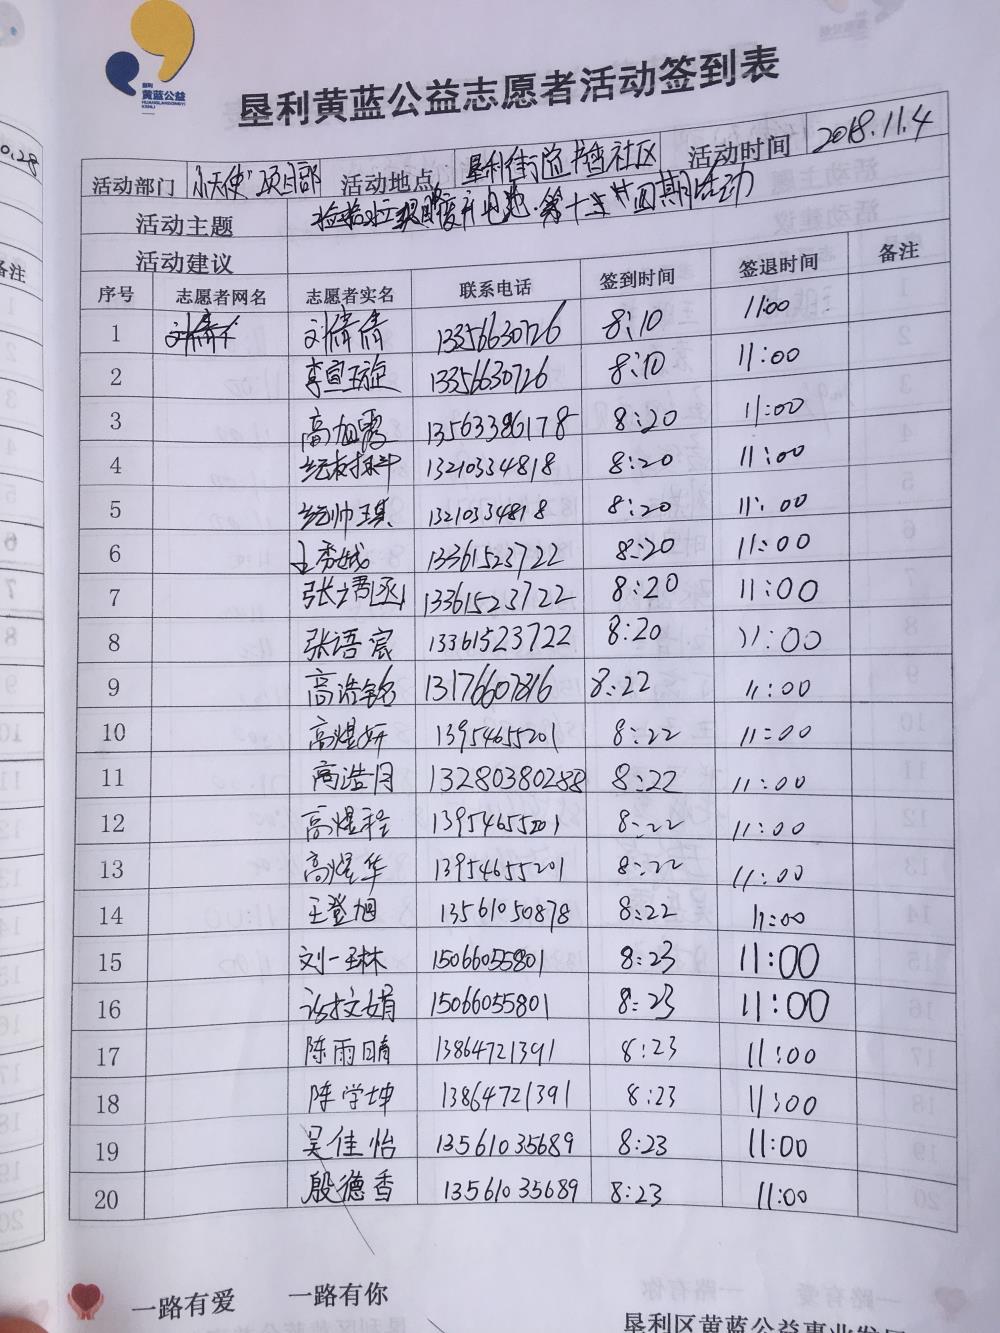 垦利
黄蓝公益
HUANGLANGONGYI
KENLI
垦利黄蓝公益志愿者活动签到表
0.28
活动部门 小天使"项目部 活动地点 垦利街道 社区 活动时间 2018.11.4
活动主题 捡拾垃圾 电池·第十 四期活动
活动建议
备注
序号 志愿者网名 志愿者实名 联系电话 签到时间 签退时间 备注
1 刘倩倩 13356630726 8:10 11:00
2 李宣璇 13356630726 8:10 11:00
3 高旭霞 13563396178 8:20 11:00
4 13210334818 8:20 11:00
5 帅琪 13210334818 8:20 11:00
6 王秀娥 13361523722 8:20 11:00
7 张 13361523722 8:20 11:00
8 张语宸 13361523722 8:20 11:00
9 高浩铭 8:22 11:00
10 高煜妍 13954655201 8:22 11:00
11 高浩月 13280380288 8:22 11:00
12 高煜程 13954655201 8:22 11:00
13 高煜华 13954655201 8:22 11:00
14 王登旭 13561050878 8:22 11:00
15 刘一琳 15066055801 8:23 11:00
16 文娟 15066055801 8:23 11:00
17 陈雨晴 13864721391 8:23 11:00
18 陈学坤 13864721391 8:23 11:00
19 吴佳怡 13561035689 8:23 11:00
20 殷德香 13561035689 8:23 11:00
一路有爱 一路有你
垦利区黄蓝公益事业发展